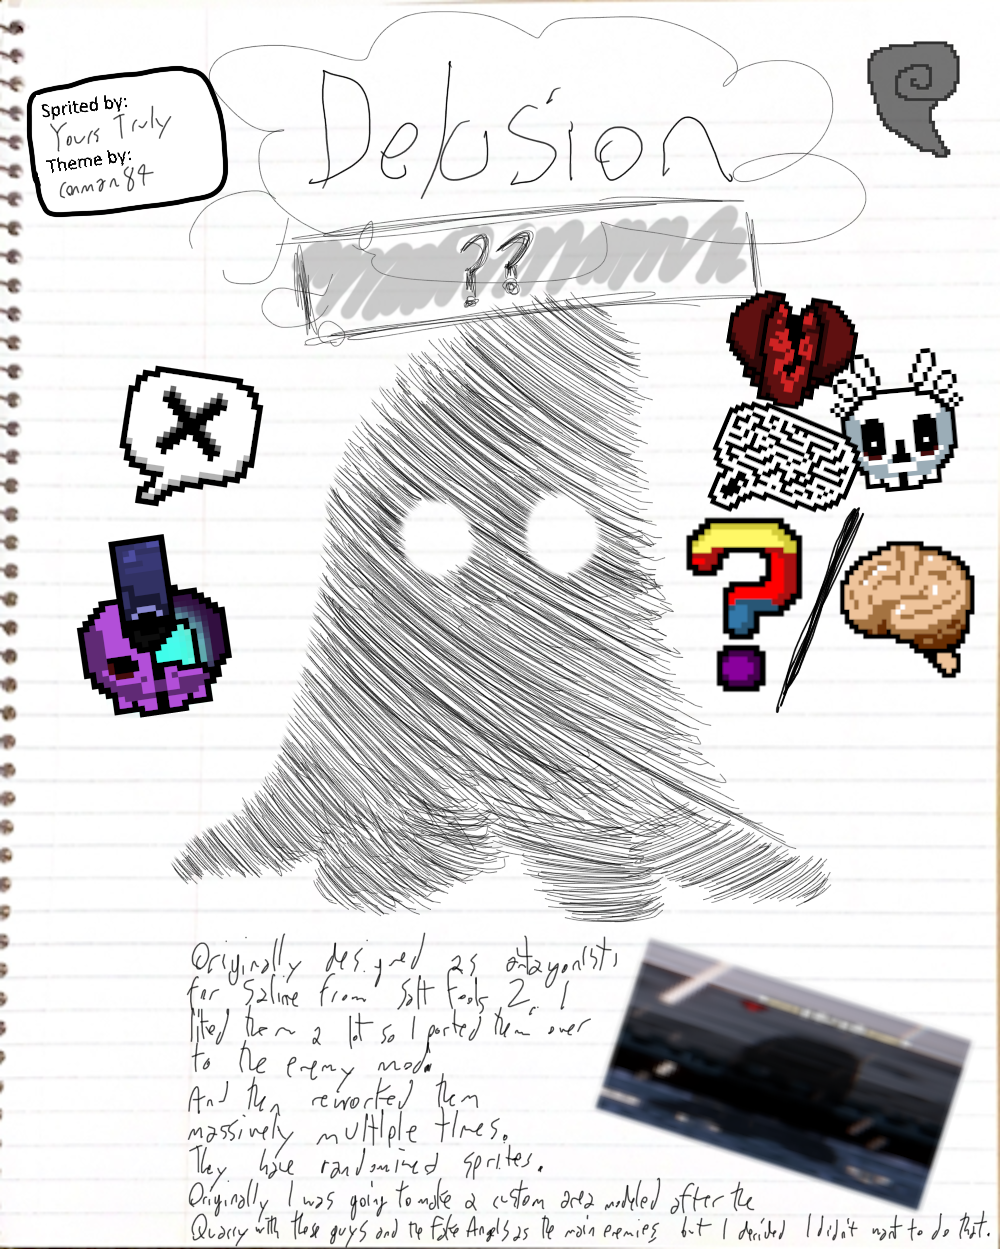 Delusion
Sprited by:
Yours Truly
Theme by:
conman84
??
Originally designed as antagonists
for Saline from Salt Fools 2. I
liked them a lot so I ported them over
to the enemy mod.
And then reworked them
massively multiple times.
They have randomized sprites.
Originally I was going to make a custom area modeled after the
Quarry with these guys and the Fake Angels as the main enemies, but I decided I didn't want to do that.